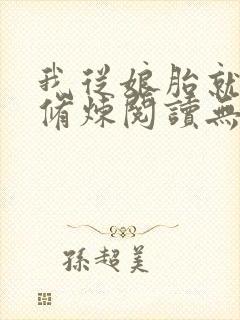 我從娘胎就
脩煉閱讀無
孫超美